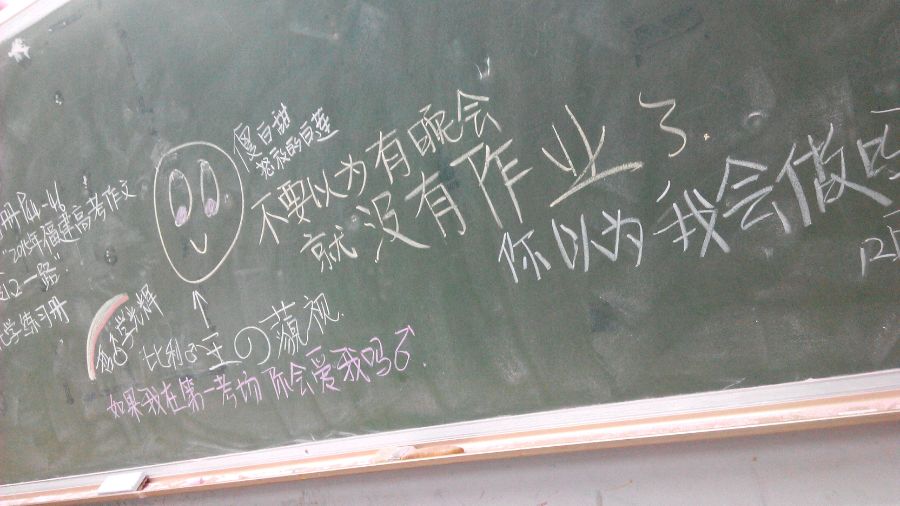 傻白甜
怒放的白莲
不要以为有晚会
就没有作业了
你以为我会做吗
册P14-46
"2015年福建高考作文
路"
化学练习册
比利王の蔑视
如果我在第一考场你会爱我吗♂